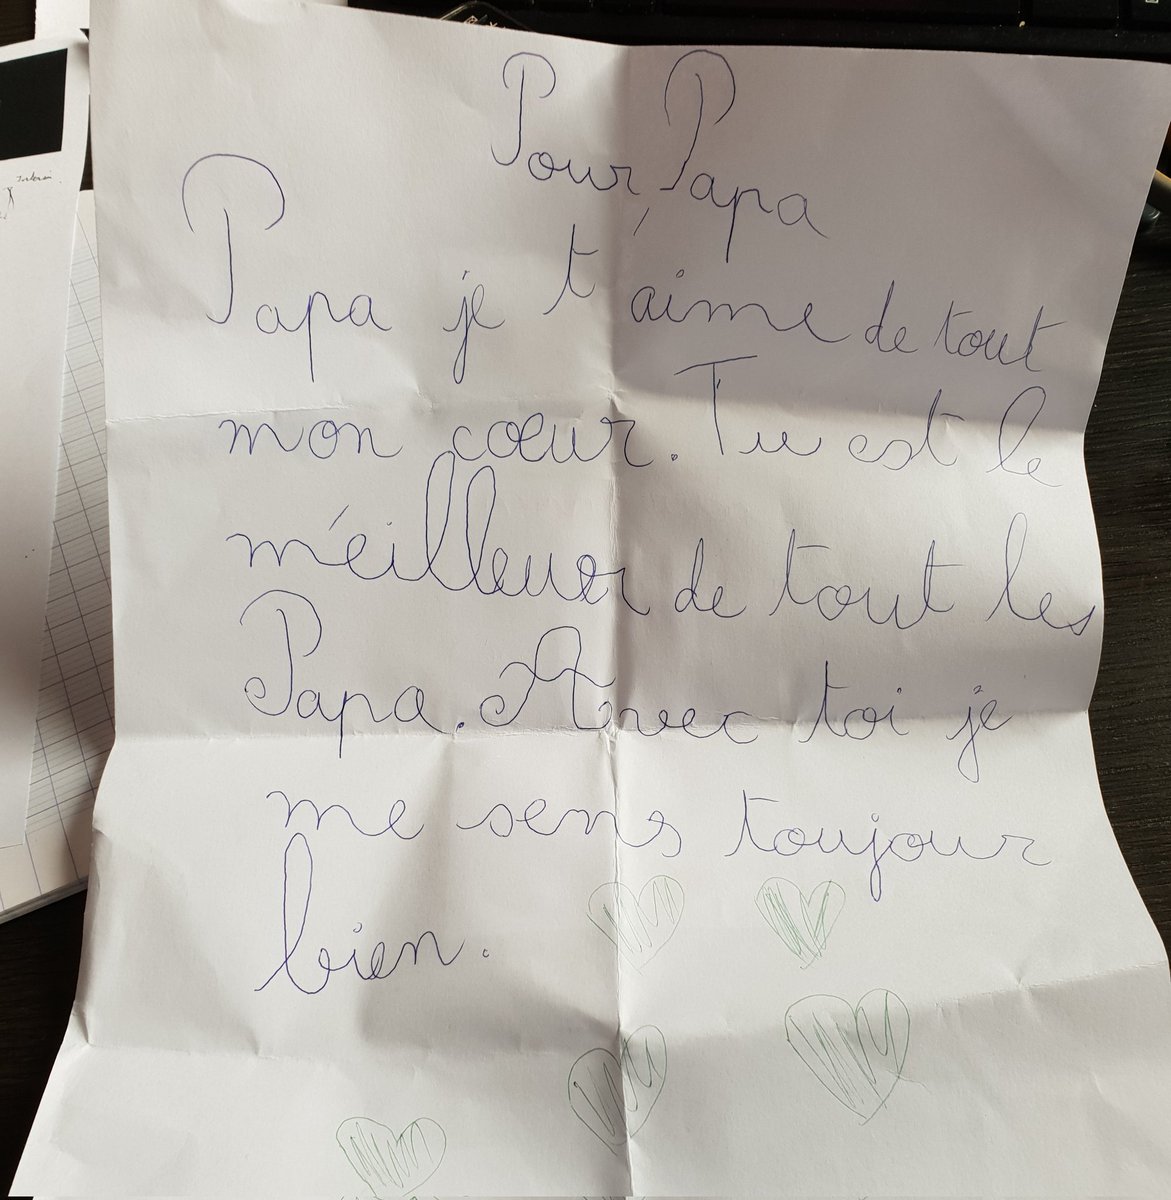 Pour Papa
Papa je t'aime de tout
mon cœur. Tu est le
méilleuor de tout les
Papa. Avec toi je
me sens toujour
bien.